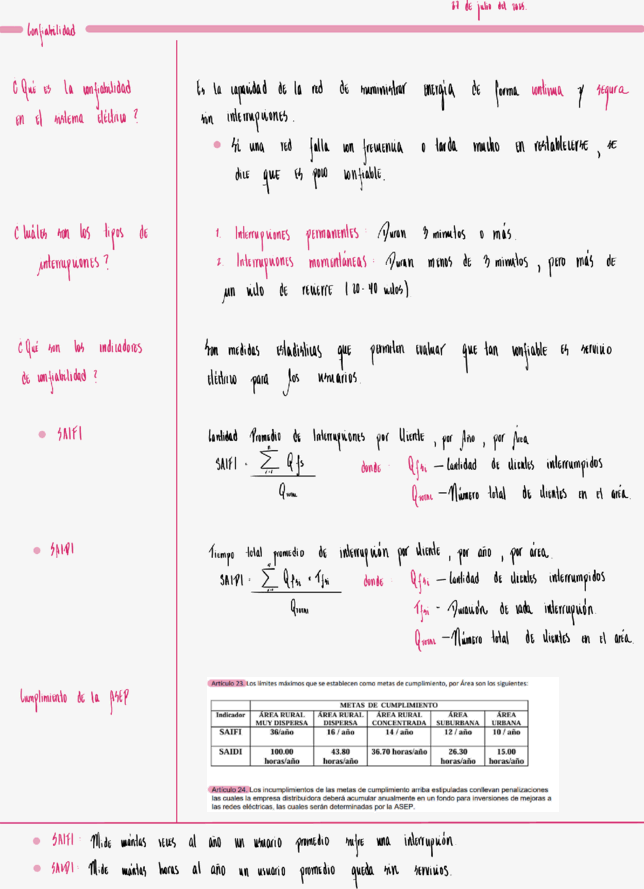 27 de julio del 2025.
Confiabilidad
¿Qué es la confiabilidad
en el sistema eléctrico?
Es la capacidad de la red de suministrar energía de forma continua y segura
sin interrupciones.
Si una red falla con frecuencia o tarda mucho en restablecerse, se
dice que es poco confiable.
¿Cuáles son los tipos de
interrupciones?
1. Interrupciones permanentes: Duran 3 minutos o más.
2. Interrupciones momentáneas: Duran menos de 3 minutos, pero más de
un ciclo de recierre (20-40 ciclos)
¿Qué son los indicadores
de confiabilidad?
Son medidas estadísticas que permiten evaluar que tan confiable es servicio
eléctrico para los usuarios.
SAIFI
Cantidad Promedio de Interrupciones por Cliente, por Año, por Área
SAIFI = Σ Qfs
Qtotal
donde: Qfsi — Cantidad de clientes interrumpidos
Qtotal — Número total de clientes en el área.
SAIDI
Tiempo total promedio de interrupción por cliente, por año, por área.
SAIDI = Σ Qfsi * Tfsi
Qtotal
donde: Qfsi — Cantidad de clientes interrumpidos
Tfsi - Duración de cada interrupción.
Qtotal — Número total de clientes en el área.
Cumplimiento de la ASEP
Artículo 23. Los límites máximos que se establecen como metas de cumplimiento, por Área son los siguientes:
METAS DE CUMPLIMIENTO
Indicador ÁREA RURAL MUY DISPERSA ÁREA RURAL DISPERSA ÁREA RURAL CONCENTRADA ÁREA SUBURBANA ÁREA URBANA
SAIFI 36/año 16 / año 14 / año 12 / año 10 / año
SAIDI 100.00 horas/año 43.80 horas/año 36.70 horas/año 26.30 horas/año 15.00 horas/año
Artículo 24. Los incumplimientos de las metas de cumplimiento arriba estipuladas conllevan penalizaciones
las cuales la empresa distribuidora deberá acumular anualmente en un fondo para inversiones de mejoras a
las redes eléctricas, las cuales serán determinadas por la ASEP.
SAIFI: Mide cuántas veces al año un usuario promedio sufre una interrupción.
SAIDI: Mide cuántas horas al año un usuario promedio queda sin servicios.